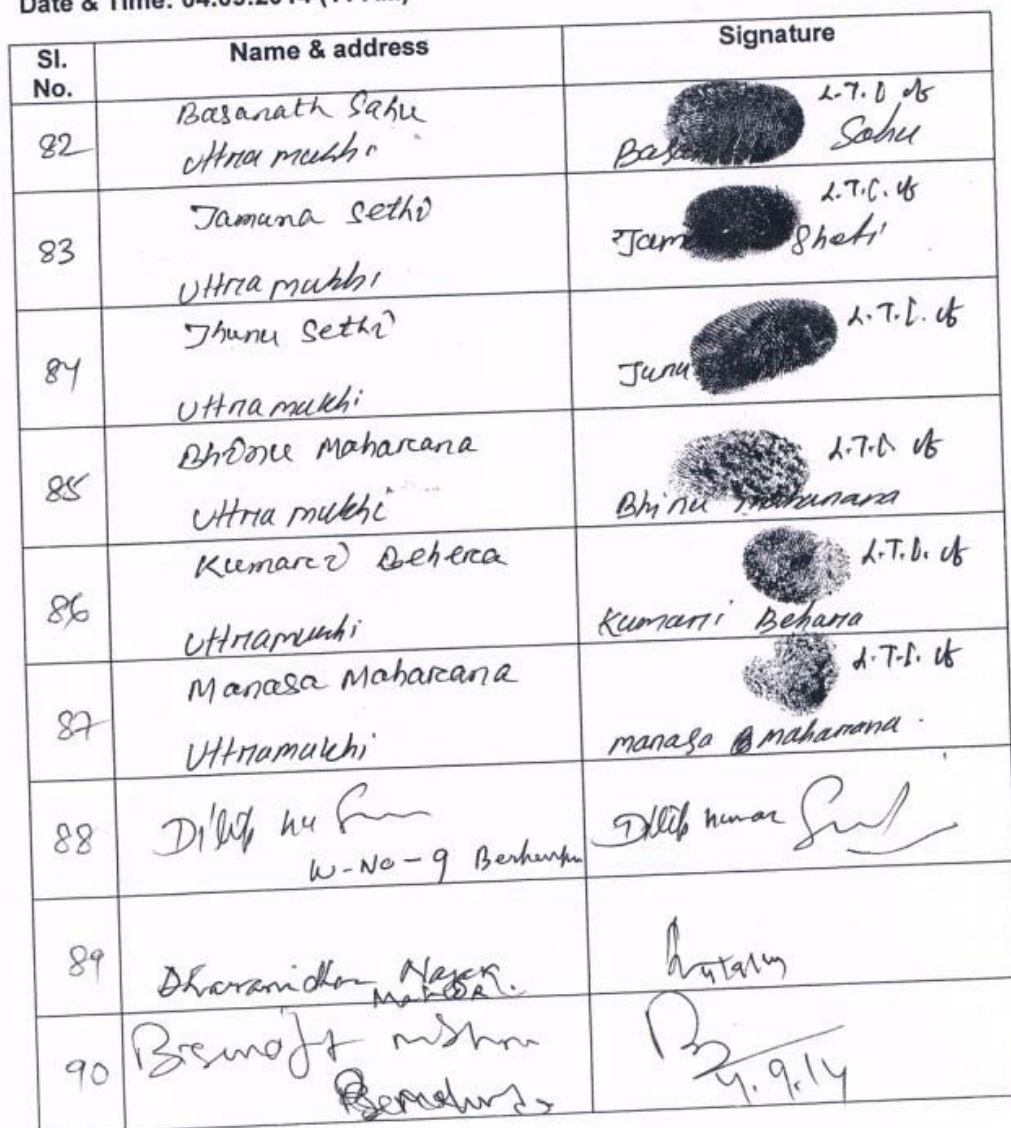 Date & Time: 04.09.2014 (11 AM)
Sl. No. Name & address Signature
82 Basanath Sahu
Uttra mukhi
L.T.I of
Sahu
83 Jamuna Sethi
Uttra mukhi
L.T.I. of
Jam Sheti
84 Jhunu Sethi
Uttra mukhi
L.T.I. of
Junu
85 Bhinu Maharana
Uttra mukhi
L.T.I. of
Bhinu maharana
86 Kumari Behera
Uttramukhi
L.T.I. of
Kumari Behara
87 Manasa Maharana
Uttramukhi
L.T.I. of
manasa maharana
88 Dilip ku
W-No-9
Dilip kumar
89 Dharanidhar Nayak
90
4.9.14